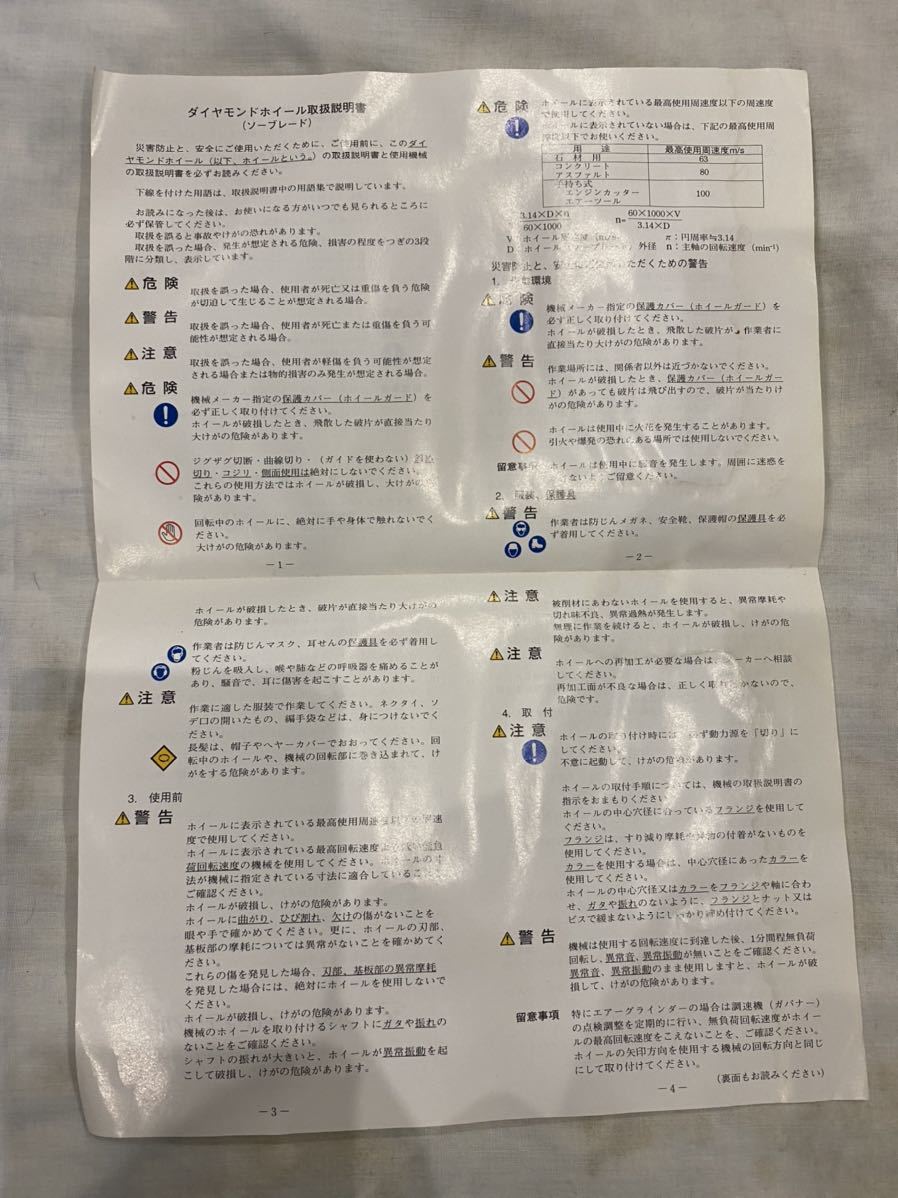 ダイヤモンドホイール取扱説明書
(ソーブレード)
災害防止と、安全にご使用いただくために、ご使用前に、このダイ
ヤモンドホイール(以下、ホイールという。)の取扱説明書と使用機械
の取扱説明書を必ずお読みください。
下線を付けた用語は、取扱説明書中の用語集で説明しています。
お読みになった後は、お使いになる方がいつでも見られるところに
必ず保管してください。
取扱を誤ると事故やけがの恐れがあります。
取扱を誤った場合、発生が想定される危険、損害の程度をつぎの3段
階に分類し、表示しています。
危険
取扱を誤った場合、使用者が死亡又は重傷を負う危険
が切迫して生じることが想定される場合。
警告
取扱を誤った場合、使用者が死亡または重傷を負う可
能性が想定される場合。
注意
取扱を誤った場合、使用者が軽傷を負う可能性が想定
される場合または物的損害のみ発生が想定される場合。
危険
機械メーカー指定の保護カバー(ホイールガード)を
必ず正しく取り付けてください。
ホイールが破損したとき、飛散した破片が直接当たり
大けがの危険があります。
ジグザグ切断・曲線切り・(ガイドを使わない)
切り・コジリ・側面使用は絶対にしないでください。
これらの使用方法ではホイールが破損し、大けがの
険があります。
回転中のホイールに、絶対に手や身体で触れないでく
ださい。
大けがの危険があります。
―1―
危険
ホイールに表示されている最高使用周速度以下の周速度
で使用してください。
ホイールに表示されていない場合は、下記の最高使用周
速度以下でお使いください。
用途 最高使用周速度m/s
石材用 63
コンクリート
アスファルト 80
手持ち式
エンジンカッター
エアーツール 100
3.14×D×n
60×1000
n= 60×1000×V
3.14×D
V:ホイール π:円周率≒3.14
D:ホイール 外径 n:主軸の回転速度(min⁻¹)
災害防止と、安全にご使用いただくための警告
1. 環境
危険
機械メーカー指定の保護カバー(ホイールガード)を
必ず正しく取り付けてください。
ホイールが破損したとき、飛散した破片が 作業者に
直接当たり大けがの危険があります。
警告
作業場所には、関係者以外は近づかないでください。
ホイールが破損したとき、保護カバー(ホイールガー
ド)があっても破片は飛び出すので、破片が当たりけ
がの危険があります。
ホイールは使用中に火花を発生することがあります。
引火や爆発の恐れのある場所では使用しないでください。
留意事項 ホイールは使用中に騒音を発生します。周囲に迷惑を
ないようご留意ください。
2. 服装、保護具
警告
作業者は防じんメガネ、安全靴、保護帽の保護具を必
ず着用してください。
―2―
ホイールが破損したとき、破片が直接当たり大けがの
危険があります。
作業者は防じんマスク、耳せんの保護具を必ず着用し
てください。
粉じんを吸入し、喉や肺などの呼吸器を痛めることが
あり、騒音で、耳に傷害を起こすことがあります。
注意
作業に適した服装で作業してください。ネクタイ、ソ
デ口の開いたもの、編手袋などは、身につけないでく
ださい。
長髪は、帽子やヘヤーカバーでおおってください。回
転中のホイールや、機械の回転部に巻き込まれて、け
がをする危険があります。
3. 使用前
警告
ホイールに表示されている最高使用周速
度で使用してください。
ホイールに表示されている最高回転速度
荷回転速度の機械を使用してください。ホイールの寸
法が機械に指定されている寸法に適合していること
ご確認ください。
ホイールが破損し、けがの危険があります。
ホイールに曲がり、ひび割れ、欠けの傷がないことを
眼や手で確かめてください。更に、ホイールの刃部、
基板部の摩耗については異常がないことを確かめてく
ださい。
これらの傷を発見した場合、刃部、基板部の異常摩耗
を発見した場合には、絶対にホイールを使用しないで
ください。
ホイールが破損し、けがの危険があります。
機械のホイールを取り付けるシャフトにガタや振れの
ないことをご確認ください。
シャフトの振れが大きいと、ホイールが異常振動を起
こして破損し、けがの危険があります。
―3―
注意
被削材にあわないホイールを使用すると、異常摩耗や
切れ味不良、異常過熱が発生します。
無理に作業を続けると、ホイールが破損し、けがの危
険があります。
注意
ホイールへの再加工が必要な場合は、メーカーへ相談
してください。
再加工面が不良な場合は、正しく取り かないので、
危険です。
4. 取付
注意
ホイールの取り付け時には、必ず動力源を「切り」に
してください。
不意に起動して、けがの危険があります。
ホイールの取付手順については、機械の取扱説明書の
指示をおまもりください
ホイールの中心穴径に合っているフランジを使用して
ください。
フランジは、すり減り摩耗や 油の付着がないものを
使用してください。
カラーを使用する場合は、中心穴径にあったカラーを
使用してください。
ホイールの中心穴径又はカラーをフランジや軸に合わ
せ、ガタや振れのないように、フランジとナット又は
ビスで緩まないようにしっかり締め付けてください。
警告
機械は使用する回転速度に到達した後、1分間程無負荷
回転し、異常音、異常振動が無いことをご確認ください。
異常音、異常振動のまま使用しますと、ホイールが破
損して、けがの危険があります。
留意事項 特にエアーグラインダーの場合は調速機(ガバナー)
の点検調整を定期的に行い、無負荷回転速度がホイー
ルの最高回転速度をこえないことを、ご確認ください。
ホイールの矢印方向を使用する機械の回転方向と同じ
にして取り付けてください。
(裏面もお読みください)
―4―